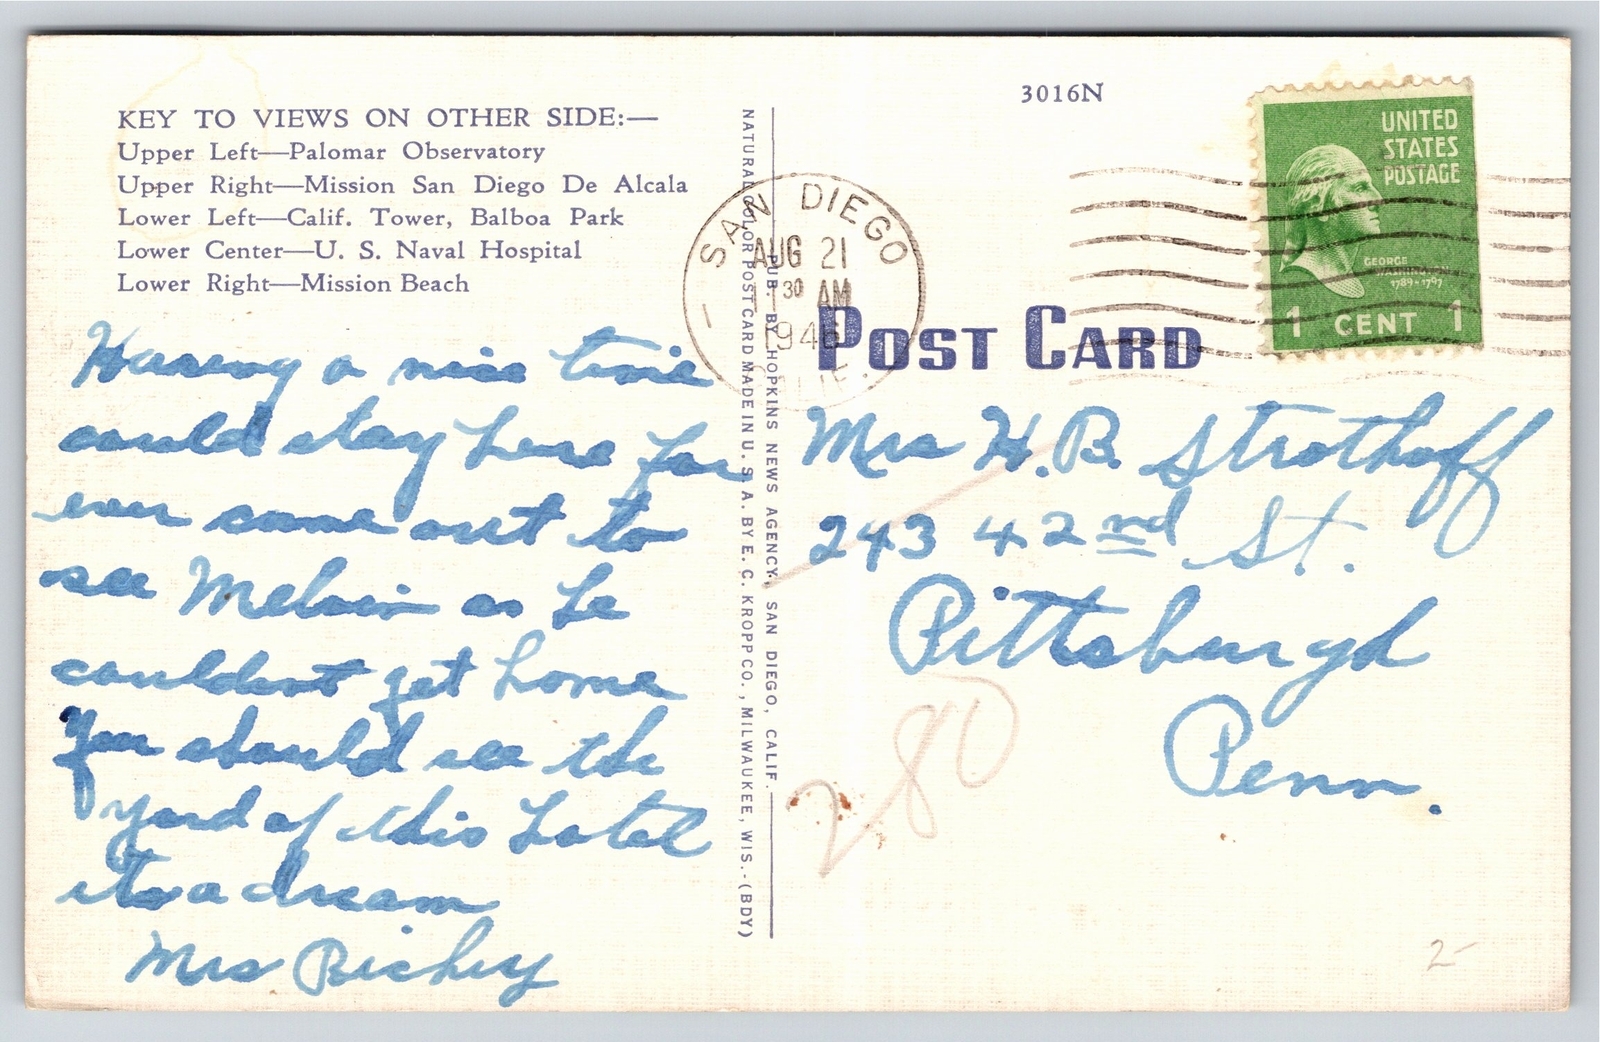 KEY TO VIEWS ON OTHER SIDE:—
Upper Left—Palomar Observatory
Upper Right—Mission San Diego De Alcala
Lower Left—Calif. Tower, Balboa Park
Lower Center—U. S. Naval Hospital
Lower Right—Mission Beach
Having a nice time
could stay here for
ever came out to
see Melvin as he
couldnot get home
You should see the
yard of this hotel
its a dream
Mrs Richey
NATURAL COLOR POST CARD MADE IN U. S. A. BY E. C. KROPP CO., MILWAUKEE, WIS.-(BDY)
PUB. BY HOPKINS NEWS AGENCY, SAN DIEGO, CALIF.
3016N
SAN DIEGO
AUG 21
1 30 AM
CALIF.
UNITED
STATES
POSTAGE
GEORGE
WASHINGTON
1789-1797
1 CENT 1
POST CARD
Mrs H. B. Strothoff
243 42nd St.
Pittsburgh
Penn.
280
2-